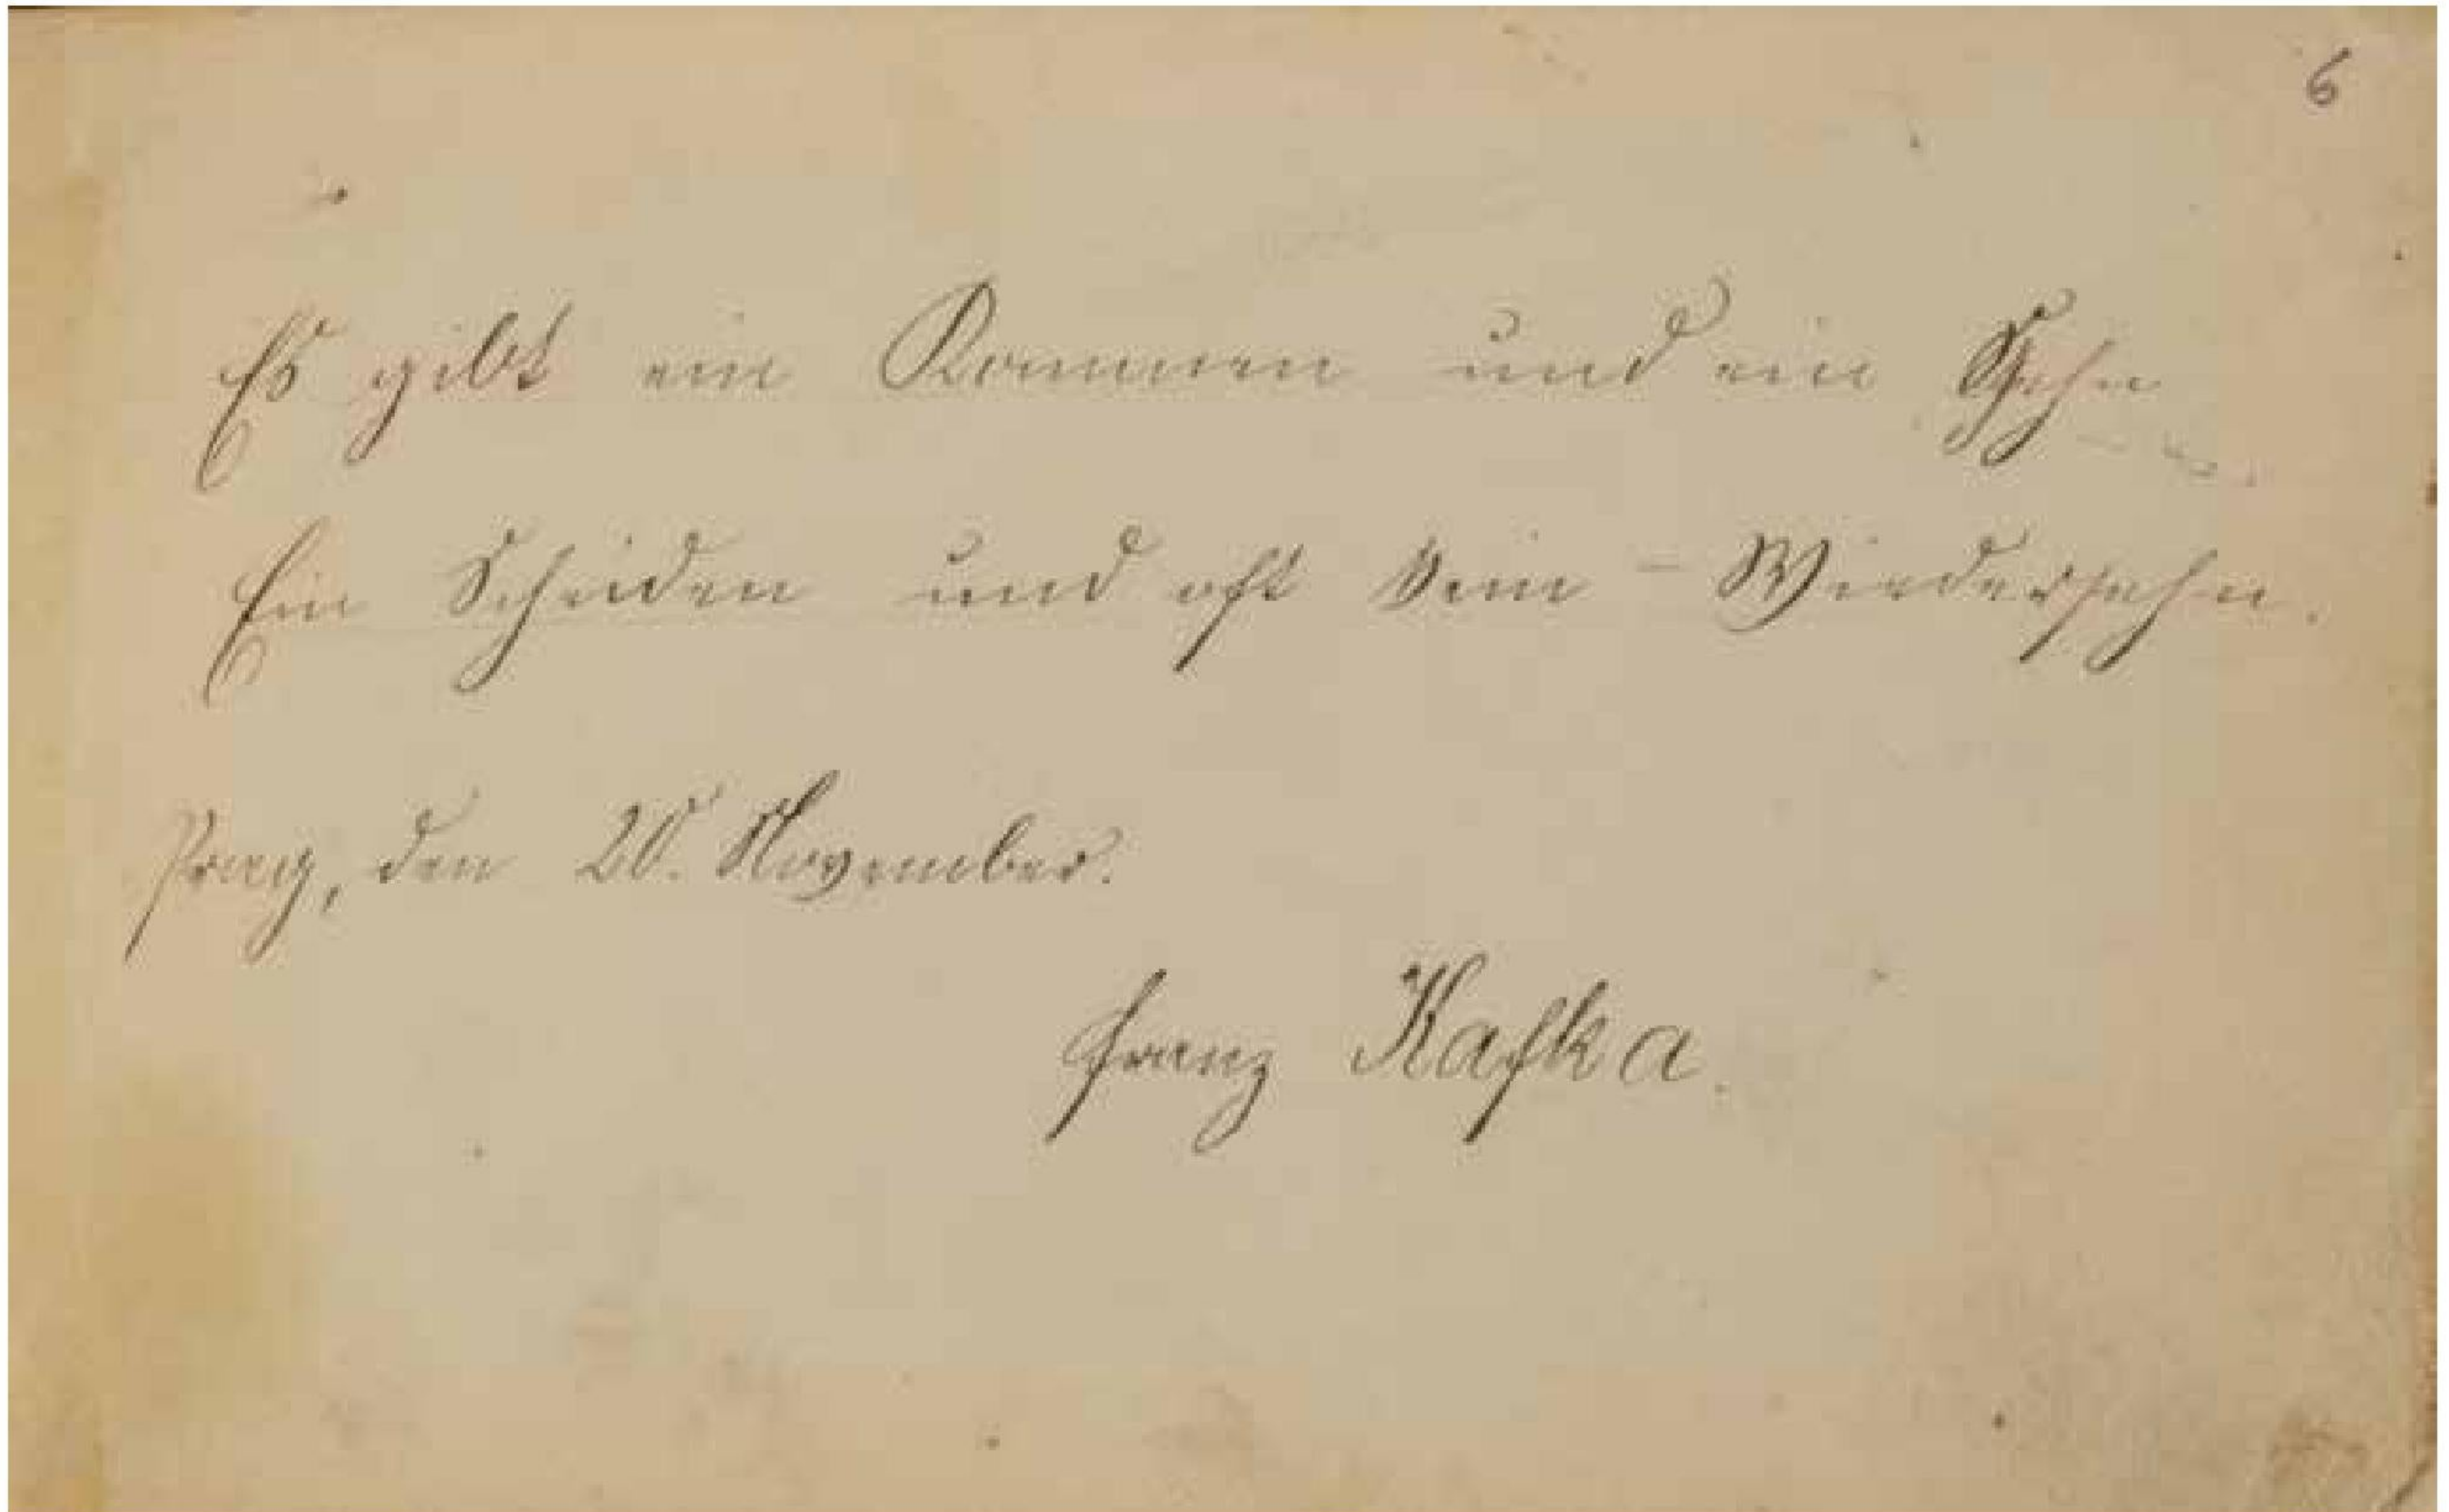 6
Es gibt ein Kommen und ein Gehn
Ein Scheiden und oft kein – Wiedersehn.
Prag, den 20. November.
Franz Kafka.